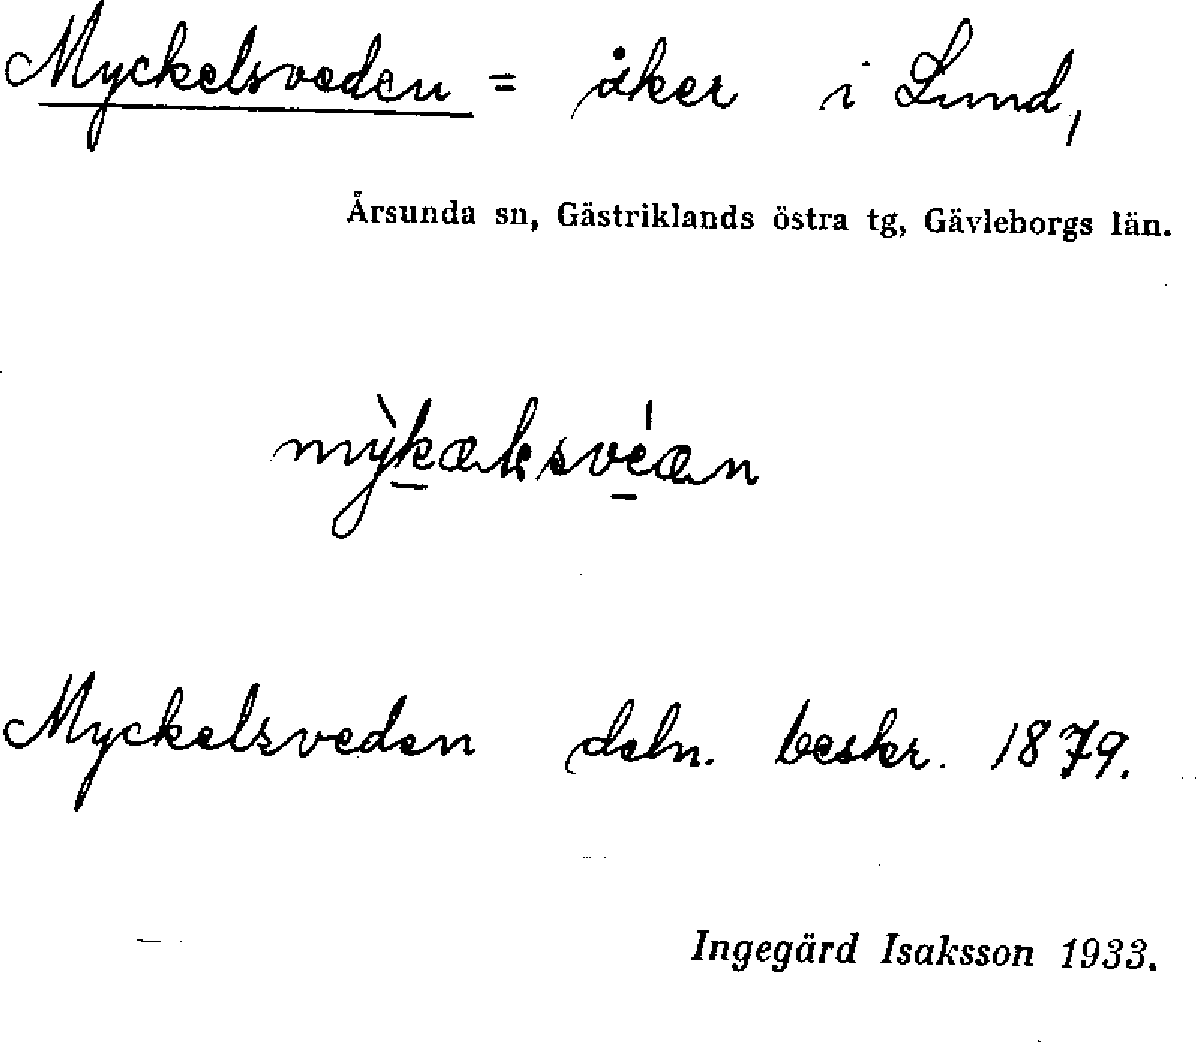 Myckelsveden = åker i Lund,
Årsunda sn, Gästriklands östra tg, Gävleborgs län.
mỳkæլsvéæn
Myckelsveden deln. beskr. 1879.
Ingegärd Isaksson 1933.